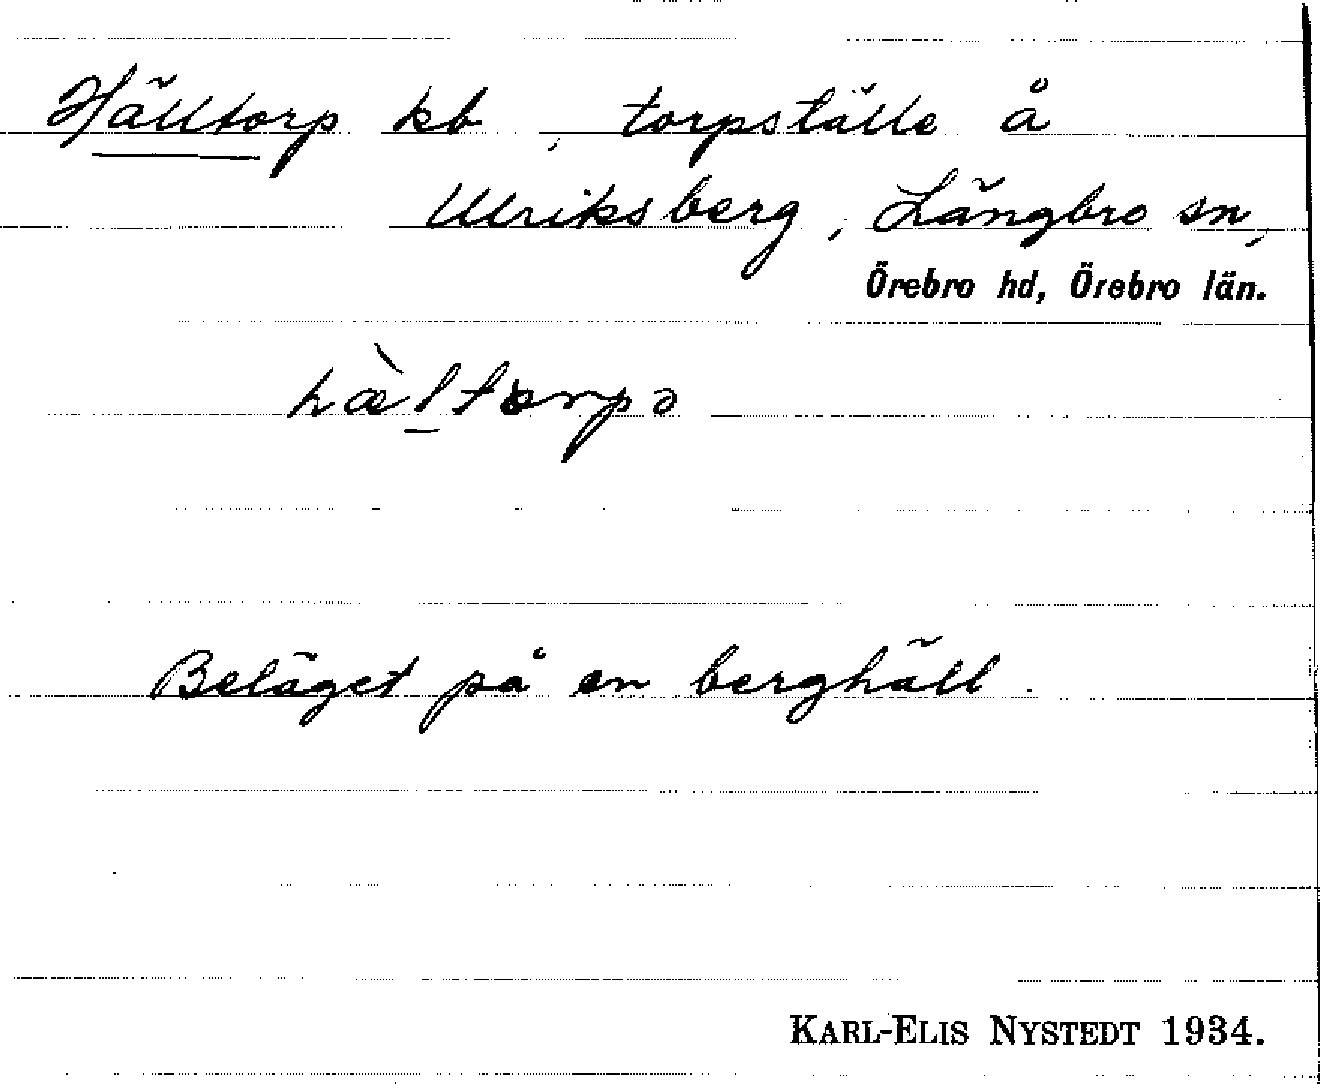 Hälltorp kb, torpställe å
Ulriksberg, Längbro sn,
Örebro hd, Örebro län.
hæ̀ltorpə
Beläget på en berghäll.
KARL-ELIS NYSTEDT 1934.